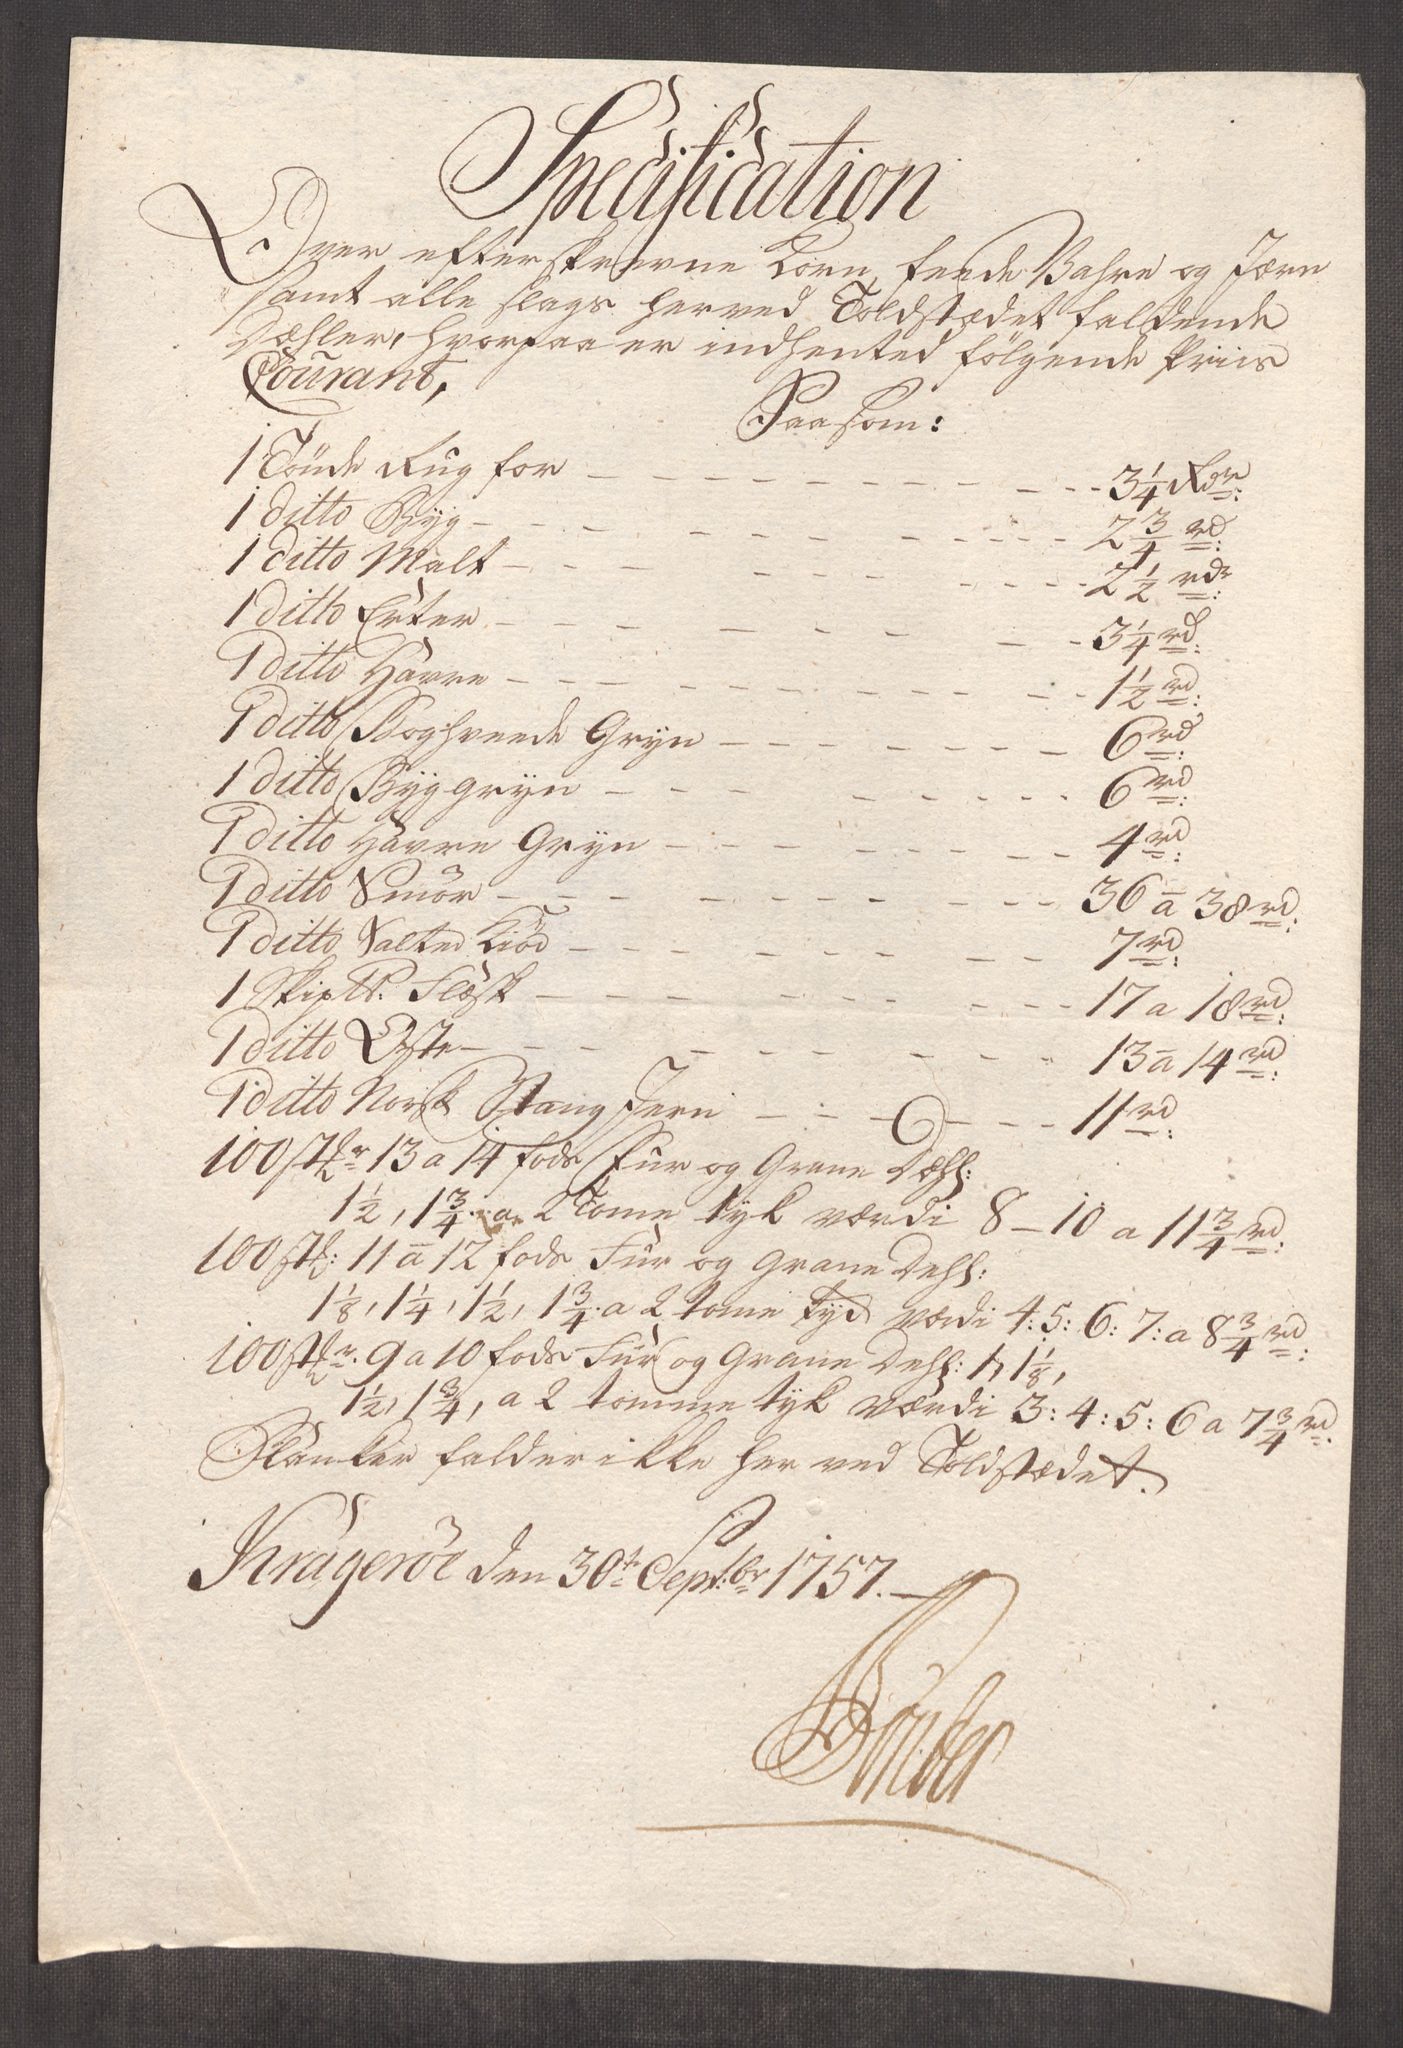 Specification
Over efterskrevne Korn, feede Vahre og Jærn
samt alle slags herved Toldstædet faldende
Dæhler, hvorpaa er indhented følgende Priis
Courant,
Saasom:
1 Tönde Rug for - - - 3 1/4 Rdr:
1 ditto Byg - - - 2 3/4 rd:
1 ditto Malt - - - 2 1/2 rdr:
1 ditto Erter - - - 3 1/4 rd:
1 ditto Havre - - - 1 1/2 rd:
1 ditto Boghveede Gryn - - - 6 rd:
1 ditto Byggryn - - - 6 rd:
1 ditto Havre Gryn - - - 4 rd:
1 ditto Smör - - - 36 a 38 rd:
1 ditto Salted Kiöd - - - 7 rd:
1 Skip℔. Flesk - - - 17 a 18 rd:
1 ditto Oste - - - 13 a 14 rd:
1 ditto Norsk Stang Jern - - - 11 rd:
100 stkr 13 a 14 fods Fur og Grane Dæhl:
1 1/2, 1 3/4 a 2 Tome tyk værdi 8 - 10 a 11 3/4 rd:
100 stk: 11 a 12 fods Fur og Grane Dehl:
1 1/8, 1 1/4, 1 1/2, 1 3/4 a 2 tome tyk værdi 4: 5: 6: 7: a 8 3/4 rd:
100 stkr. 9 a 10 fods Fur og Grane Dehl: 1, 1 1/8,
1 1/2, 1 3/4, a 2 tomme tyk værdi 3: 4: 5: 6 a 7 3/4 rd:
Planker falder ikke her ved Toldstædet.
Krageröe den 30te Septbr 1757.